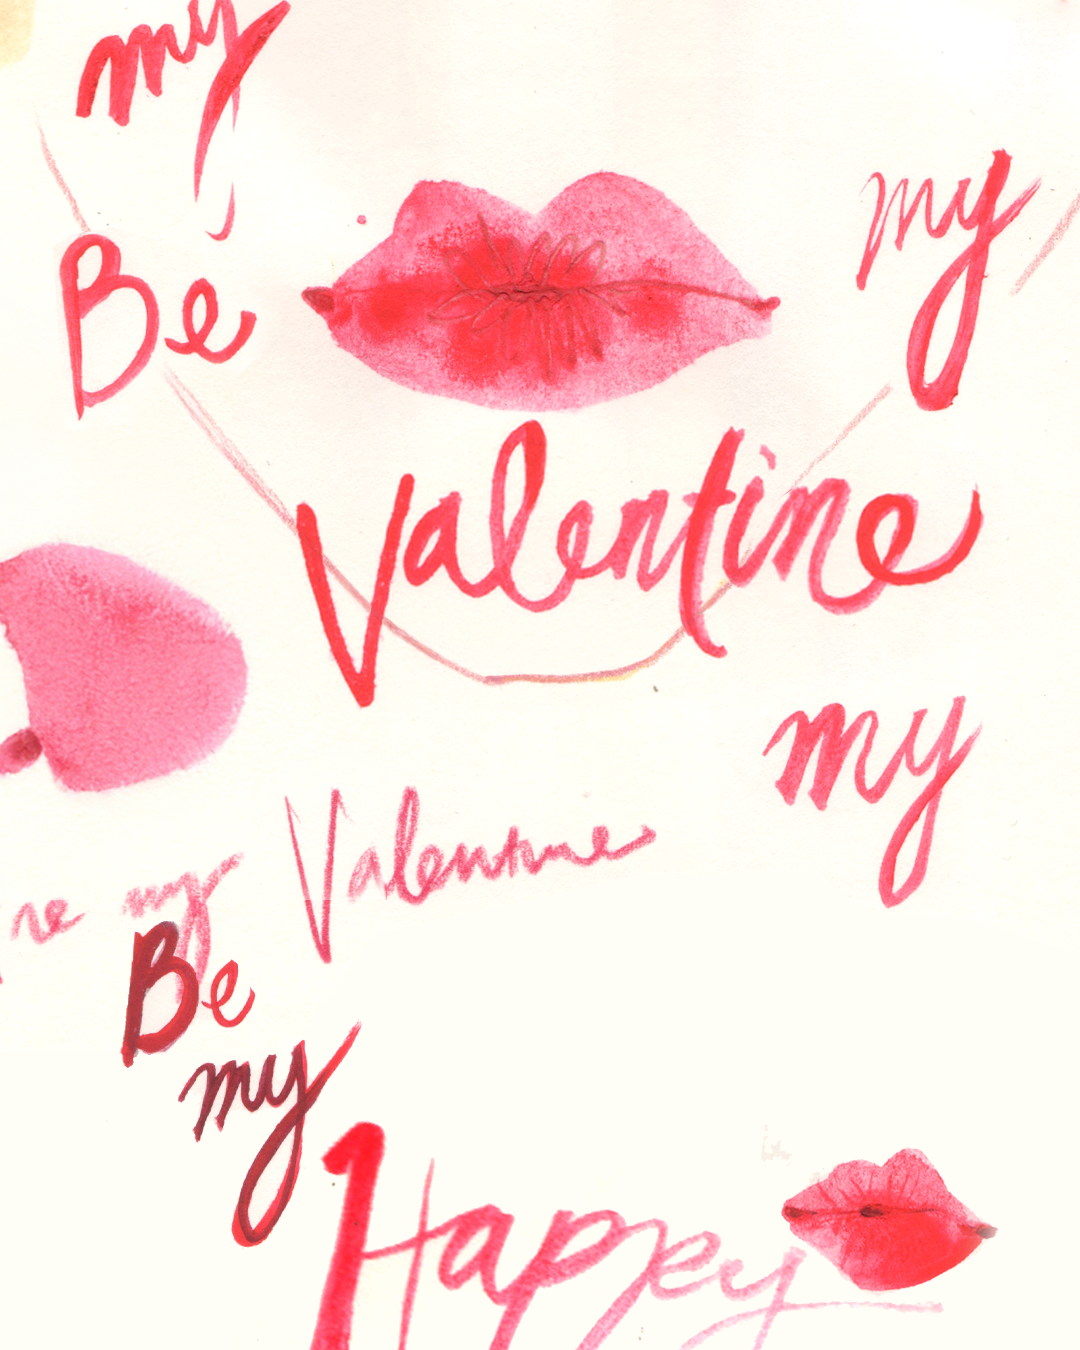 my
my
Be
Valentine
my
Valentine
re my
Be
my
Happy